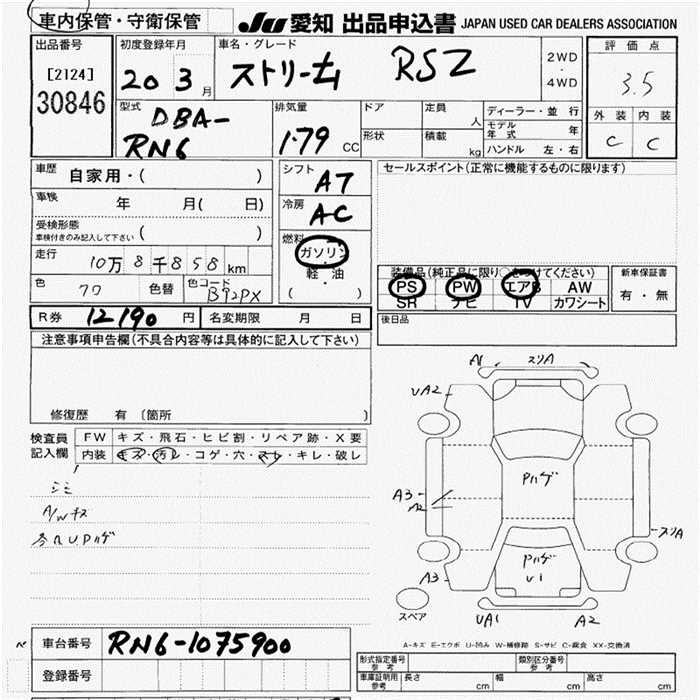 車内保管・守衛保管
JU 愛知 出品申込書 JAPAN USED CAR DEALERS ASSOCIATION
出品番号
[2124]
30846
初度登録年月
20 3月
車名・グレード
ストリーム RSZ
2WD
・
4WD
評価点
3.5
外装 内装
C C
型式
DBA-
RN6
排気量
1.79 CC
ドア
形状
定員 人
積載 kg
ディーラー・並行
モデル年式 年
ハンドル 左・右
車歴
自家用・( )
車検 年 月( 日)
受検形態
車検付きのみ記入して下さい ( )
走行
10万8千858km
色 クロ 色替 色コード B92PX
シフト
A7
冷房
AC
燃料
ガソリン
・
軽油
・
( )
セールスポイント(正常に機能するものに限ります)
装備品(純正品に限り○をつけてください)
PS PW エアB AW
SR ナビ TV カワシート
新車保証書
有・無
後日品
R券 12190 円 名変期限 月 日
注意事項申告欄(不具合内容等は具体的に記入して下さい)
修復歴 有 (箇所 )
検査員
記入欄
FW キズ・飛石・ヒビ割・リペア跡・X要
内装 キズ・汚レ・コゲ・穴・スレ・キレ・破レ
シミ
A/Wキズ
各所U.Pハゲ
A1 スリA
UA2
Pハゲ
A3
スリA
Pハゲ
U1
A3
スペア
UA1 A2
A-キズ E-エクボ U-凹み W-補修跡 S-サビ C-腐食 XX-交換済
車台番号 RN6-1075900
登録番号
形式指定番号
参考
類別区分番号
参考
車庫証明用
参考
長さ cm 幅 cm 高さ cm